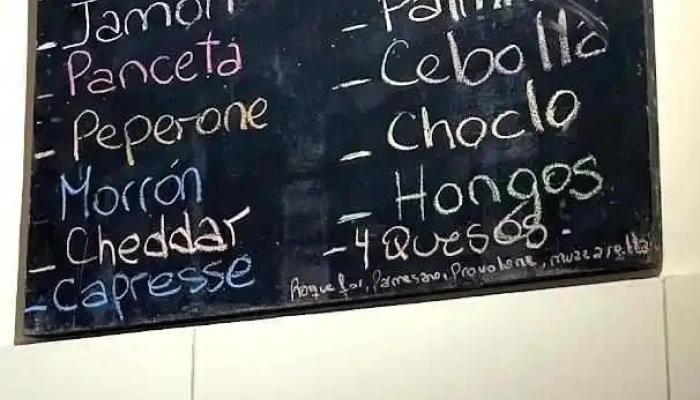 - Jamón
- Panceta
- Peperone
- Morrón
- Cheddar
- Capresse
- Cebolla
- Choclo
- Hongos
- 4 Quesos.
Roquefor, Parmesano, Provolone, muzzarella